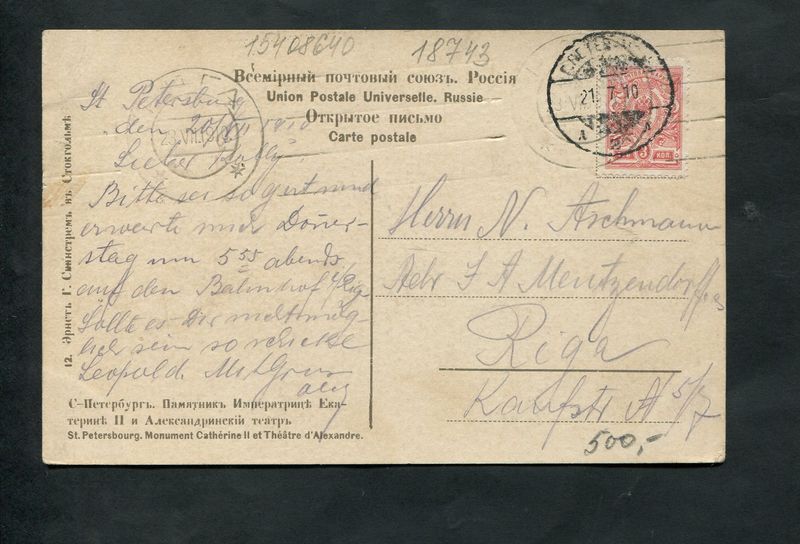 15408640
18743
Всемірный почтовый союзъ. Россія
Union Postale Universelle. Russie
Открытое письмо
Carte postale
С ПЕТЕР
21 7 10
3 КОП.
St Petersburg
den 20/VII 1910
Lieber
Bitte sei so gut und
erwarte mich Donner-
stag um 5 55 abends
auf den Bahnhof
Sollte es Dir nicht mög-
lich sein so schicke
Leopold. Mit Gruss
Herrn N. Aschmann
Adr J A Mentzendorff
Riga
Kaufstr № 5/7
500,-
12. Эрнстъ Г. Сванстремъ въ Стокгольмѣ
С-Петербургъ. Памятникъ Императрицѣ Ека-
теринѣ II и Александринскій театръ
St. Petersbourg. Monument Cathérine II et Théâtre d'Alexandre.